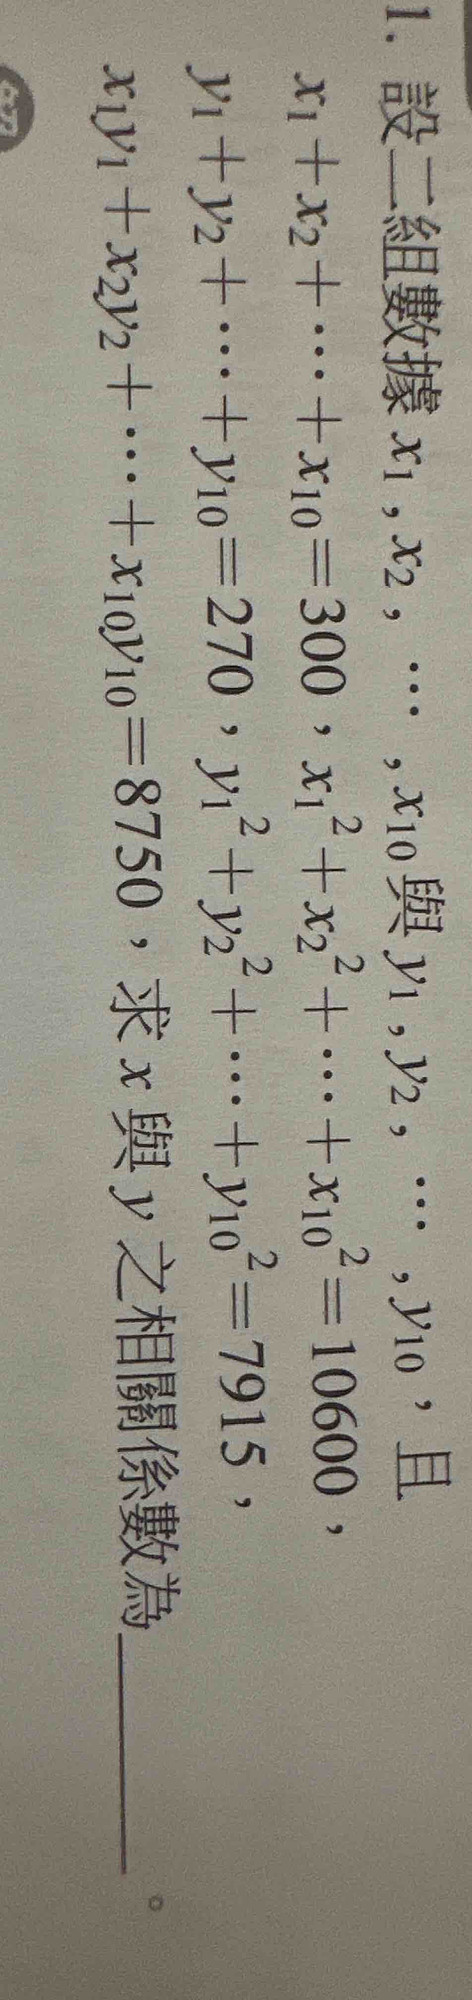 1. 設二組數據 x₁ , x₂ , … , x₁₀ 與 y₁ , y₂ , … , y₁₀ , 且
x₁＋x₂＋…＋x₁₀＝300 , x₁²＋x₂²＋…＋x₁₀²＝10600 ,
y₁＋y₂＋…＋y₁₀＝270 , y₁²＋y₂²＋…＋y₁₀²＝7915 ,
x₁y₁＋x₂y₂＋…＋x₁₀y₁₀＝8750 , 求 x 與 y 之相關係數為＿＿＿＿＿。